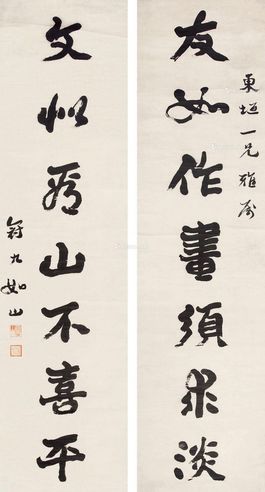 東垣一兄雅屬
友如作畫須求淡
文似看山不喜平
錫九如山